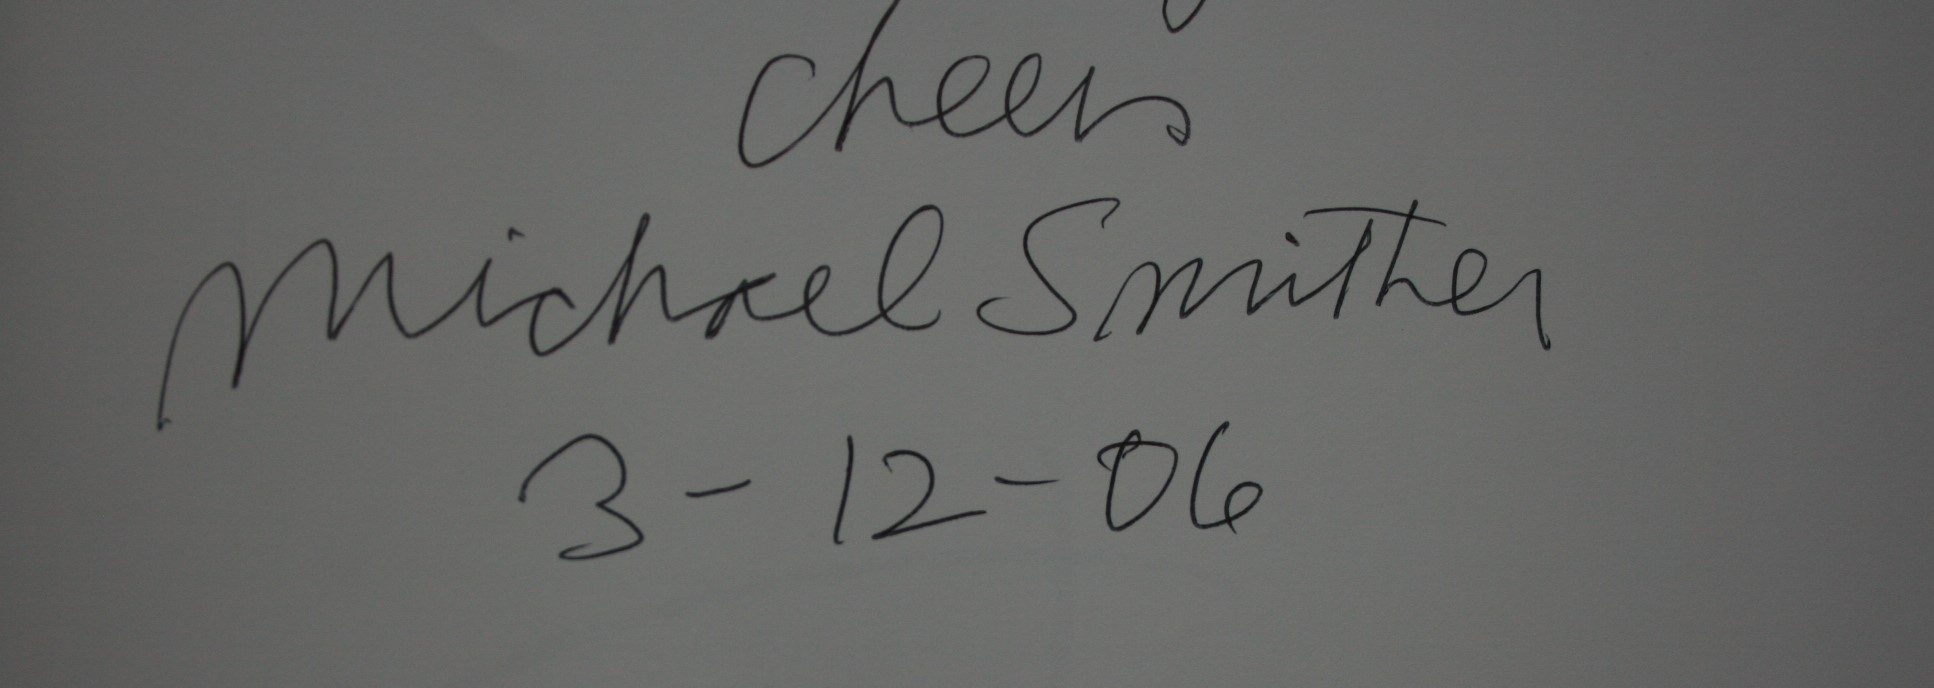 cheers
Michael Smither
3-12-06